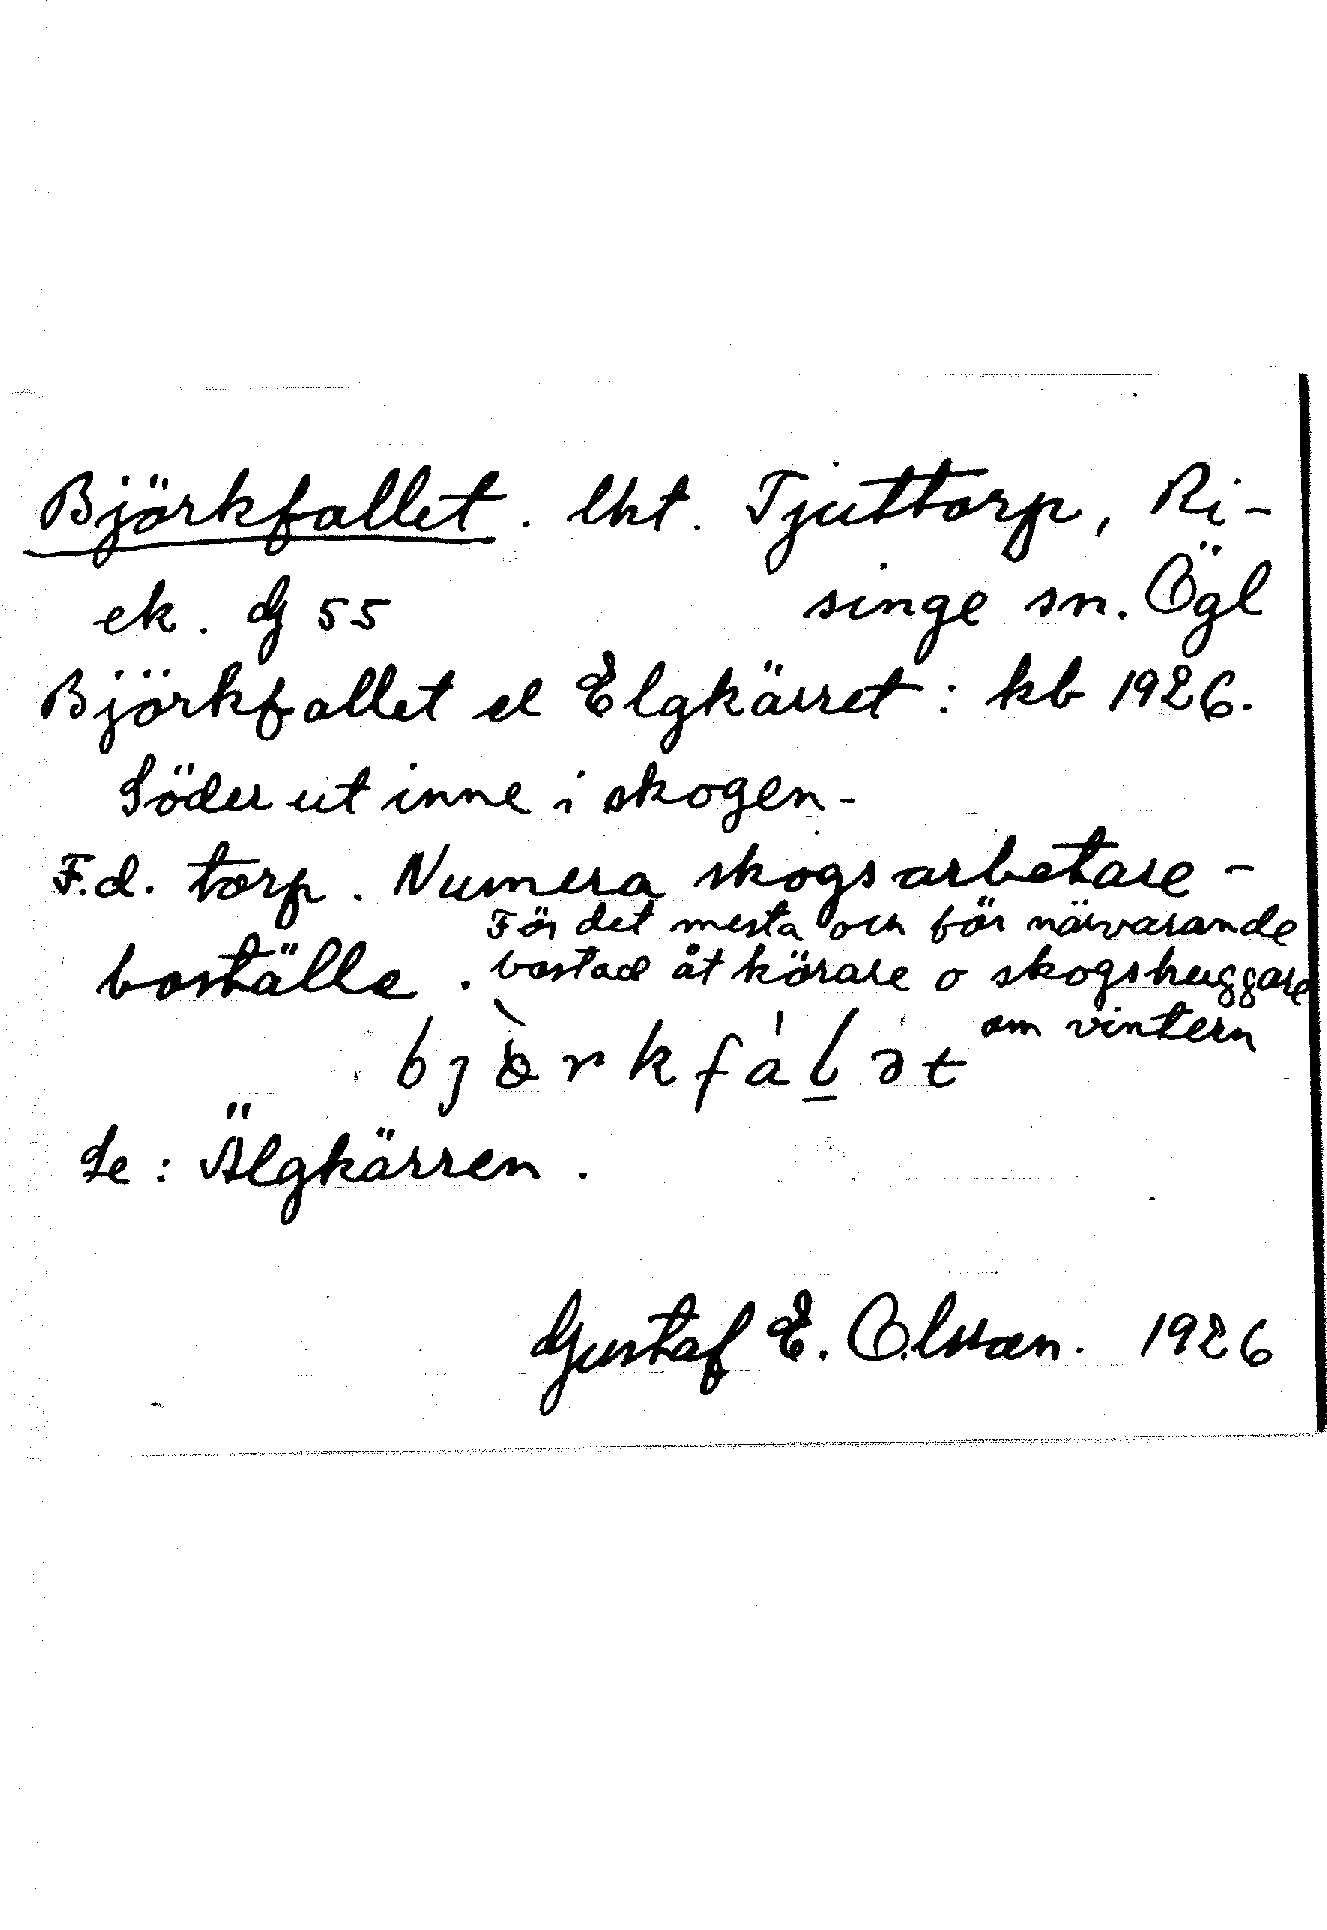 Björkfallet. lht. Tjuttorp, Ri-
ek. dj 55 singe sn. Ögl
Björkfallet el Elgkärret : kb 1926.
Söder ut inne i skogen -
F.d. torp. Numera skogsarbetare-
För det mesta och för närvarande
boställe. bostad åt körare o skogshuggare
om vintern
Se : Älgkärren.
Gustaf E. Olsson. 1926